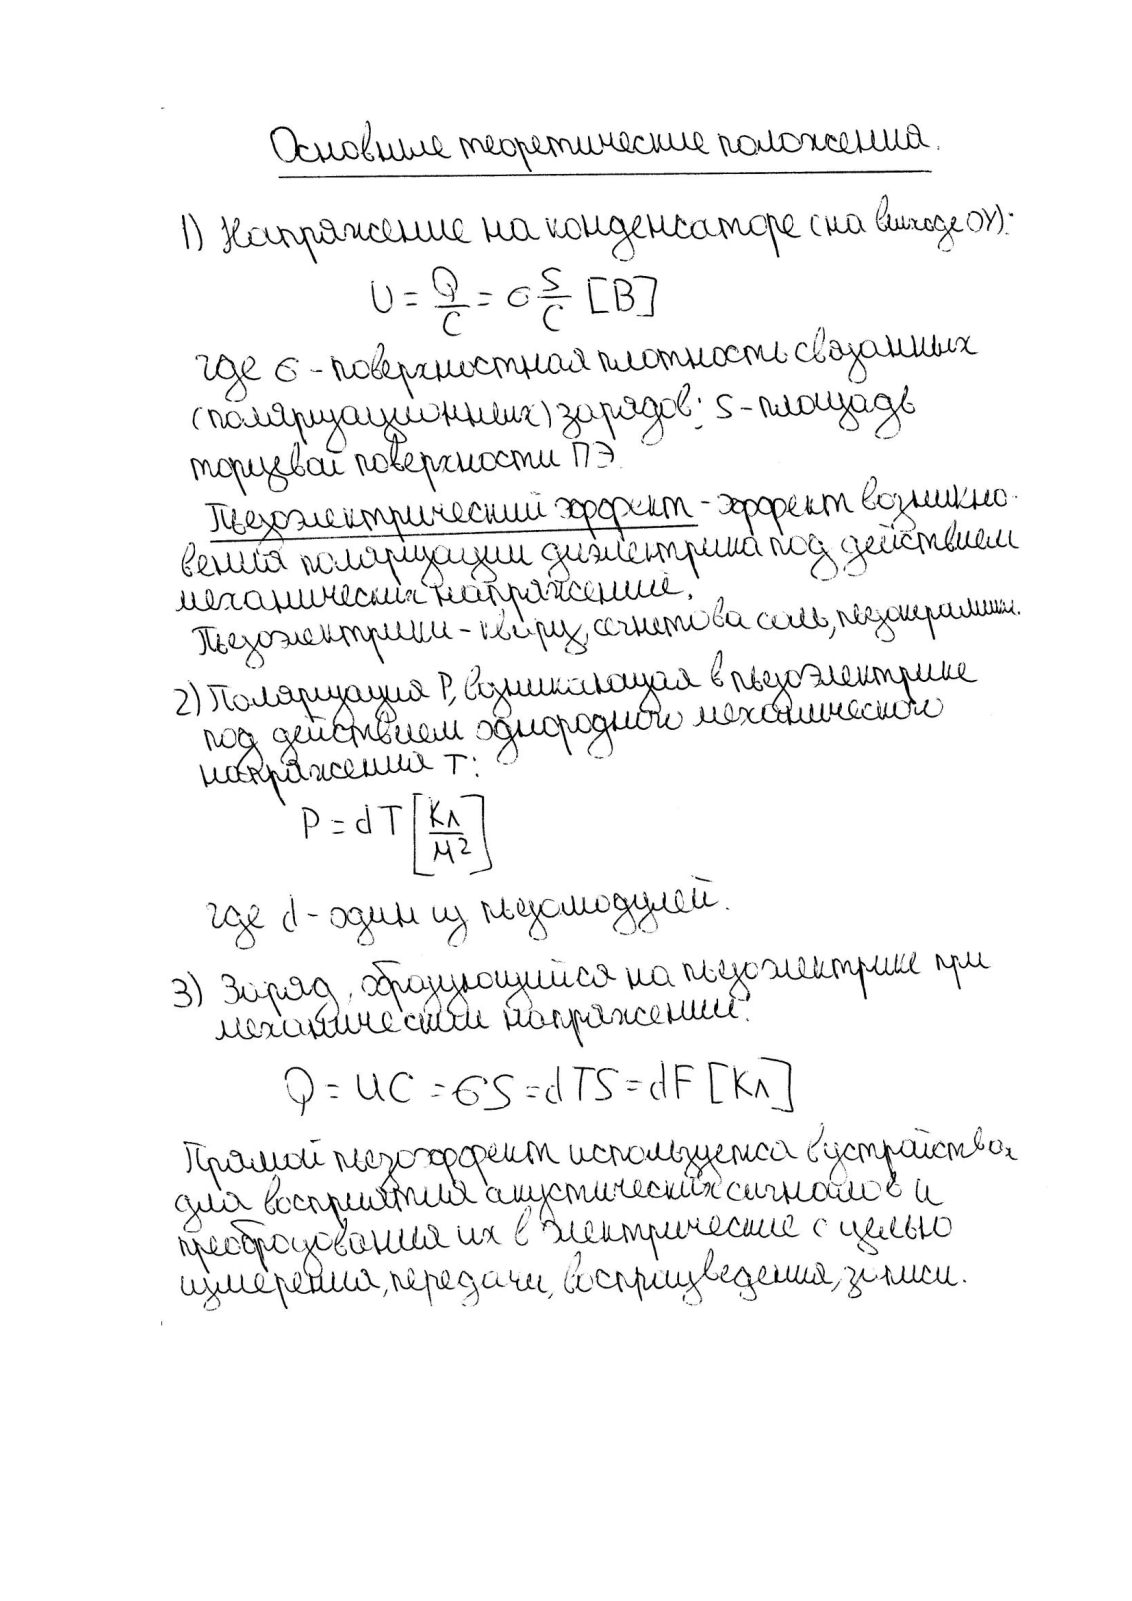 Основные теоретические положения.
1) Напряжение на конденсаторе (на выходе ОУ):
U = Q/C = σ S/C [В]
где σ - поверхностная плотность связанных
(поляризационных) зарядов; S - площадь
торцевой поверхности ПЭ
Пьезоэлектрический эффект - эффект возникно-
вения поляризации диэлектрика под действием
механических напряжений.
Пьезоэлектрики - кварц, сегнетова соль, пьезокерамики.
2) Поляризация P, возникающая в пьезоэлектрике
под действием однородного механического
напряжения T:
P = dT [Кл/м²]
где d - один из пьезомодулей.
3) Заряд, образующийся на пьезоэлектрике при
механическом напряжении:
Q = UC = σS = dTS = dF [Кл]
Прямой пьезоэффект используется в устройствах
для восприятия акустических сигналов и
преобразования их в электрические с целью
измерения, передачи, воспроизведения, записи.